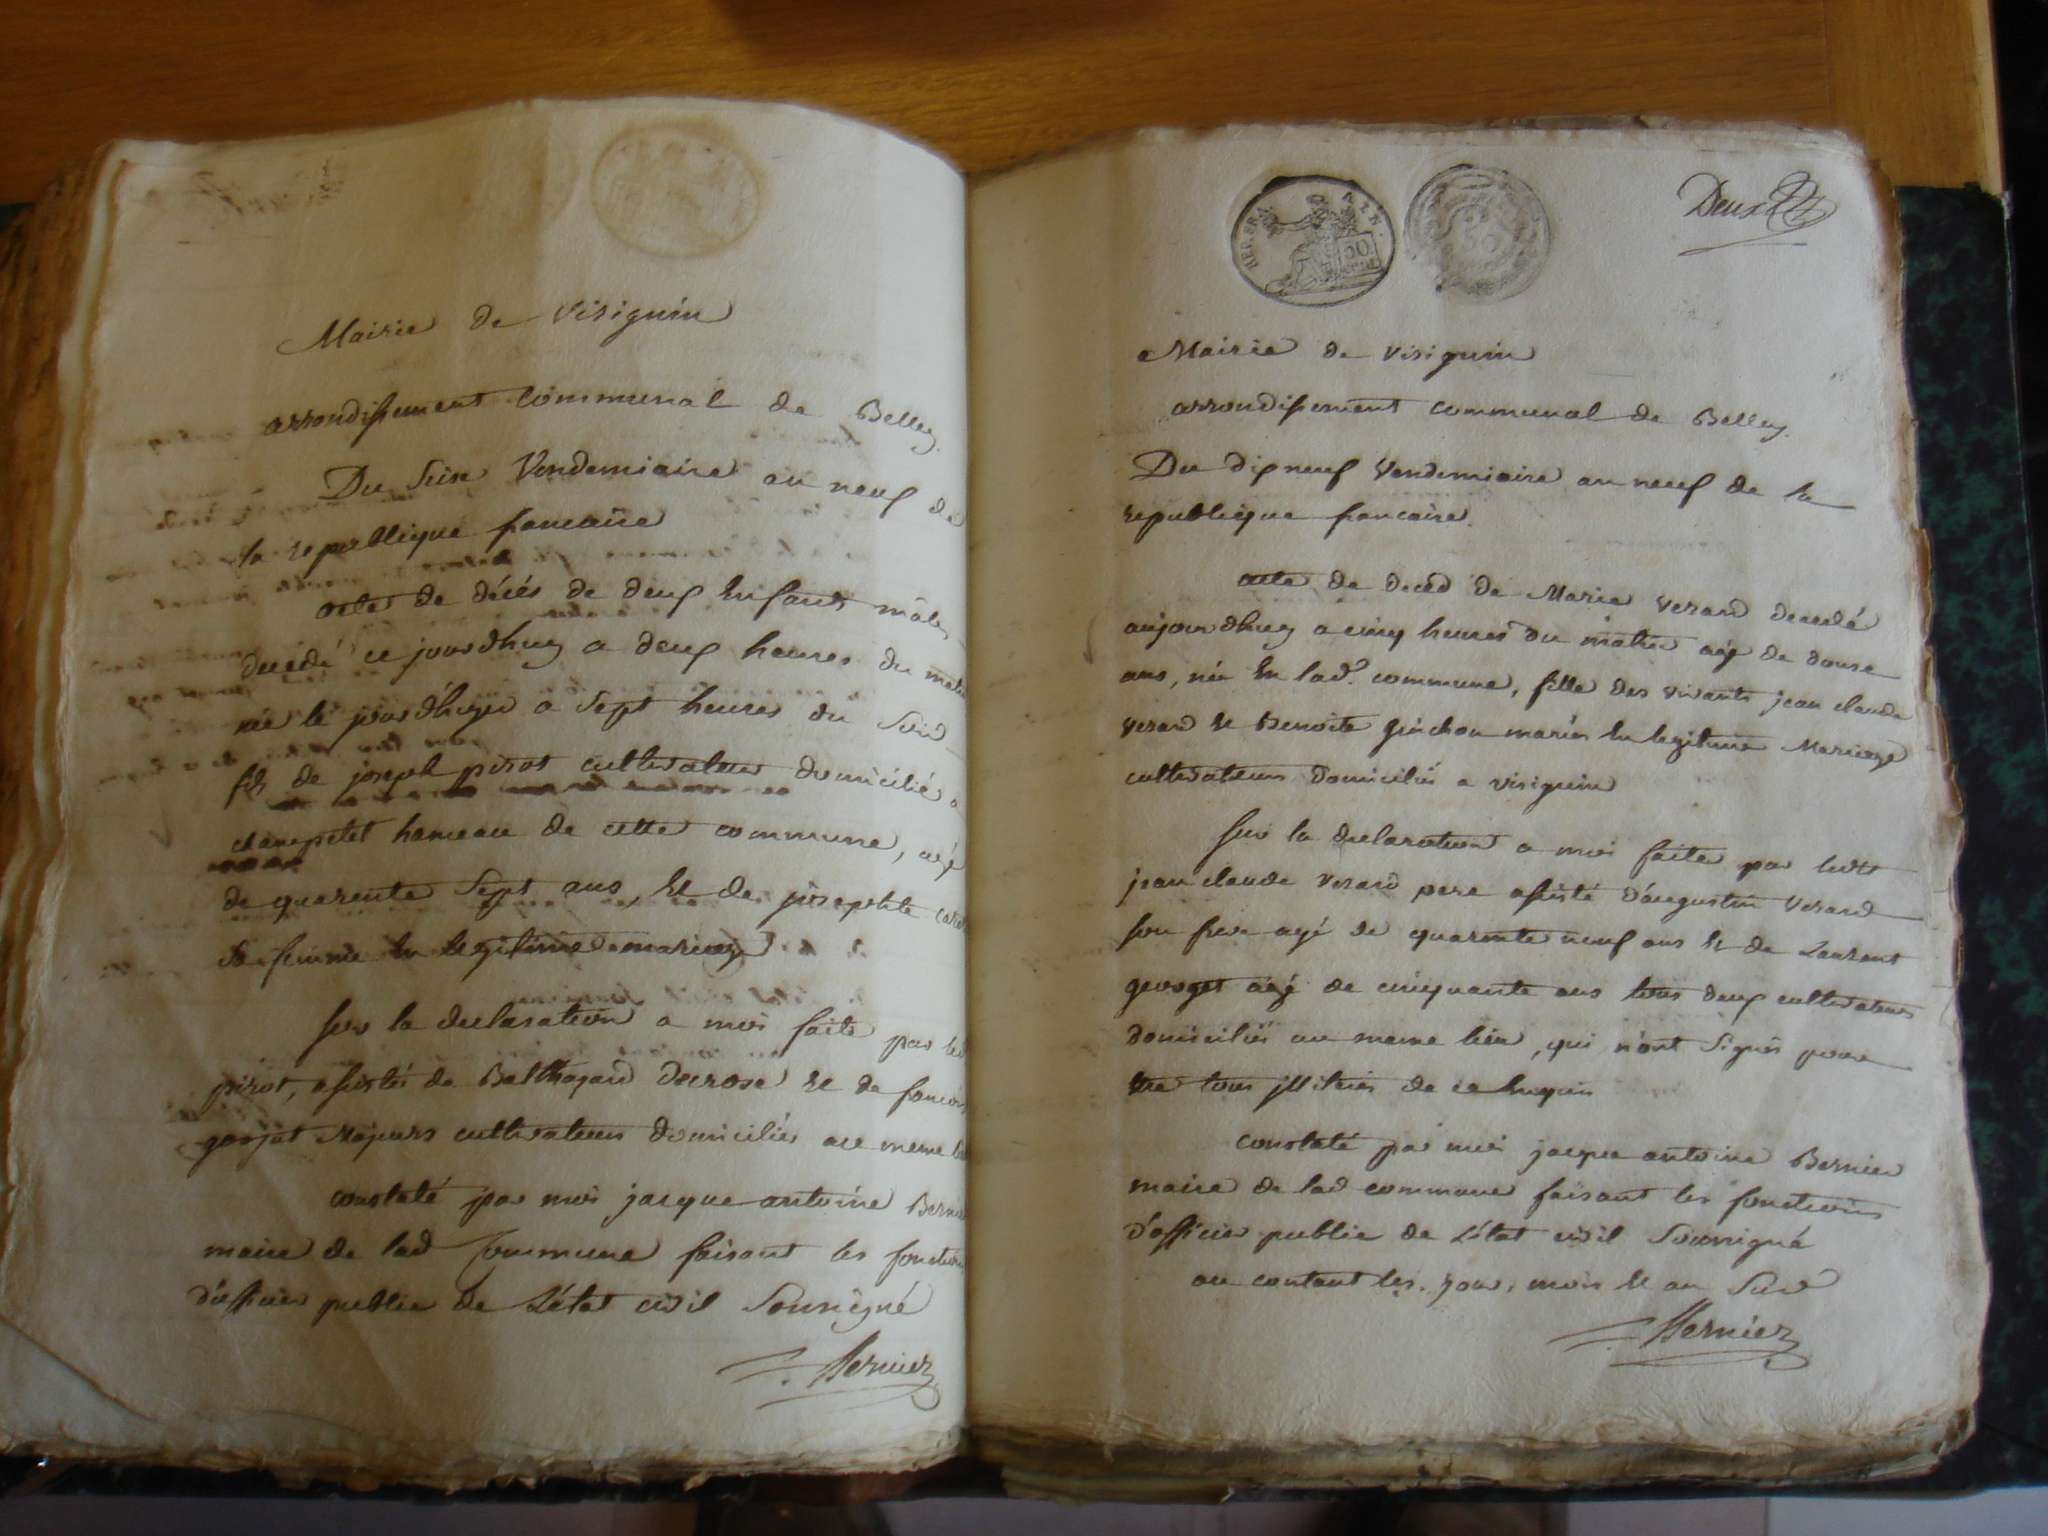 Mairie de visignin
arrondissement communal de Belley.
Du seise Vendemiaire an neuf de
la republique francaise
acte de décés de deux enfants mâles
decédé ce jourdhuy a deux heures du matin
née le jourdhyer a Sept heures du Soir
fils de joseph pirot cultivateur domicilié a
hameau de cette commune, agé
de quarente Sept ans, et de josephte
Sa femme en legitime mariage
Sur la declaration a moi faite par led
pirot, assistés de Balthazard Decrose et de francois
gorjat Majeurs cultivateurs domiciliés au meme lieu
constaté par moi jacque antoine Bernier
maire de lad Commune faisant les fonctions
d'officier public de L'état civil Sousigné
Bernier
REP. FRA.
50
Deux
Mairie de visignin
arrondissement communal de Belley.
Du dix neuf Vendemiaire an neuf de la
republique francaise.
acte de deces de Marie verard decedé
aujourdhuy a cinq heures du matin agé de douse
ans, née en lad.e commune, fille des vivants jean claude
verard et Benoite guichon mariés en legitime Mariage
cultivateurs domiciliés a visignin
Sur la declaration a moi faite par ledit
jean claude verard pere assisté d'augustin verard
son frere agé de quarente neuf ans et de Laurent
georges agé de cinquante ans tous deux cultivateurs
domiciliés au meme lieu, qui n'ont Signés pour
etre tous illiterés de ce enquis
constaté par moi jacque antoine Bernier
maire de lad commune faisant les fonctions
d'officier public de L'état civil Sousigné
au contant les jour, mois et an Susd
Bernier